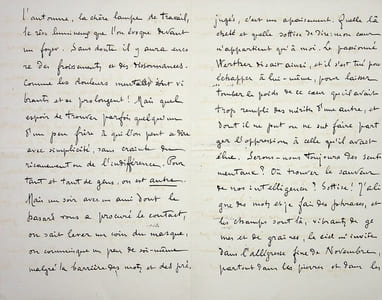 l'automne, la chère lampe de travail,
le rêve lumineux que l'on évoque devant
un foyer. Sans doute il y aura enco
re des froissements et des dissonnances.
Comme les douleurs mentales sont vi
brantes et se prolongent! Mais quel
espoir de trouver parfois quelqu'un
d'un peu frère à qui l'on peut se dire
avec simplicité, sans crainte du
ricanement ou de l'indifférence. Pour
tant et tant de gens, on est autre.
Mais un soir avec un ami dont le
hasard vous a procuré le contact,
on sait lever un coin du masque,
on communique un peu de soi-même
malgré la barrière des mots et des pré
jugés, c'est un apaisement. Quelle lâ
cheté et quelle sottise de dire: mon cœur
n'appartient qu'à moi. Le passionné
Werther disait ainsi, et il s'est tué pour
échapper à lui-même, pour laisser
tomber le poids de ce cœur qu'il avait
trop rempli des mérites d'une autre, et
dont il ne put ou ne sut faire parta
ger l'oppression à celle qu'il avait
élue. Serons-nous toujours des senti
mentaux? Où trouver le sauveur
de nos intelligences? Sottise! J'ali
gne des mots et je fais des phrases, et
les champs sont là, vibrants, de ger
mes et de graines, le ciel m'invite
dans l'allégresse fine de Novembre,
partout dans les pierres et dans les